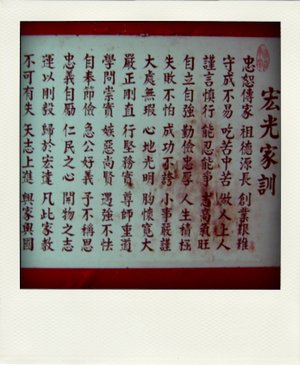 宏光家訓
忠恕傳家 祖德源長 創業艱難
守成不易 吃苦中苦 做人上人
謹言慎行 能忍能爭 志高氣旺
自立自強 勤儉忠厚 人生積極
失敗不怕 成功不誇 小事嚴謹
大處無瑕 心地光明 胸懷寬大
嚴正剛直 行堅務實 尊師重道
學問崇實 嫉惡尚賢 遇強不怯
自奉節儉 急公好義 予不稱恩
忠義自勵 仁民之心 開物之志
運以剛毅 歸於宏達 凡此家教
不可有失 天志上進 興家興國